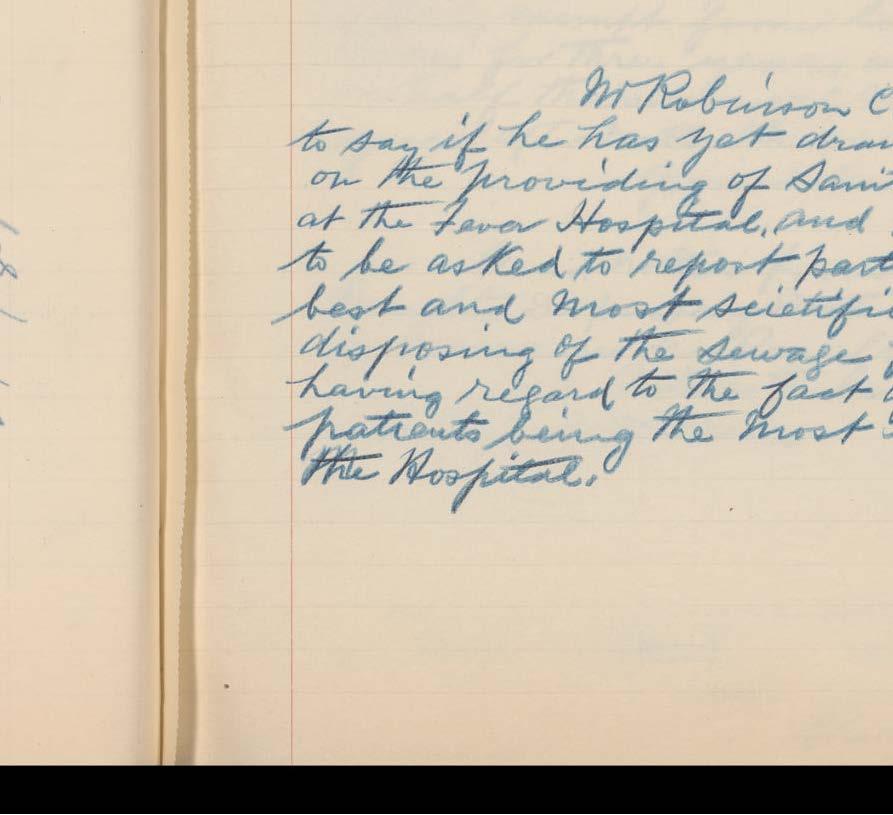 Mr Robinson C
to say if he has yet draw
on the providing of Sani
at the Fever Hospital, and
to be asked to report part
best and most scietific
disposing of the sewage f
having regard to the fact
patients being the most
the Hospital.